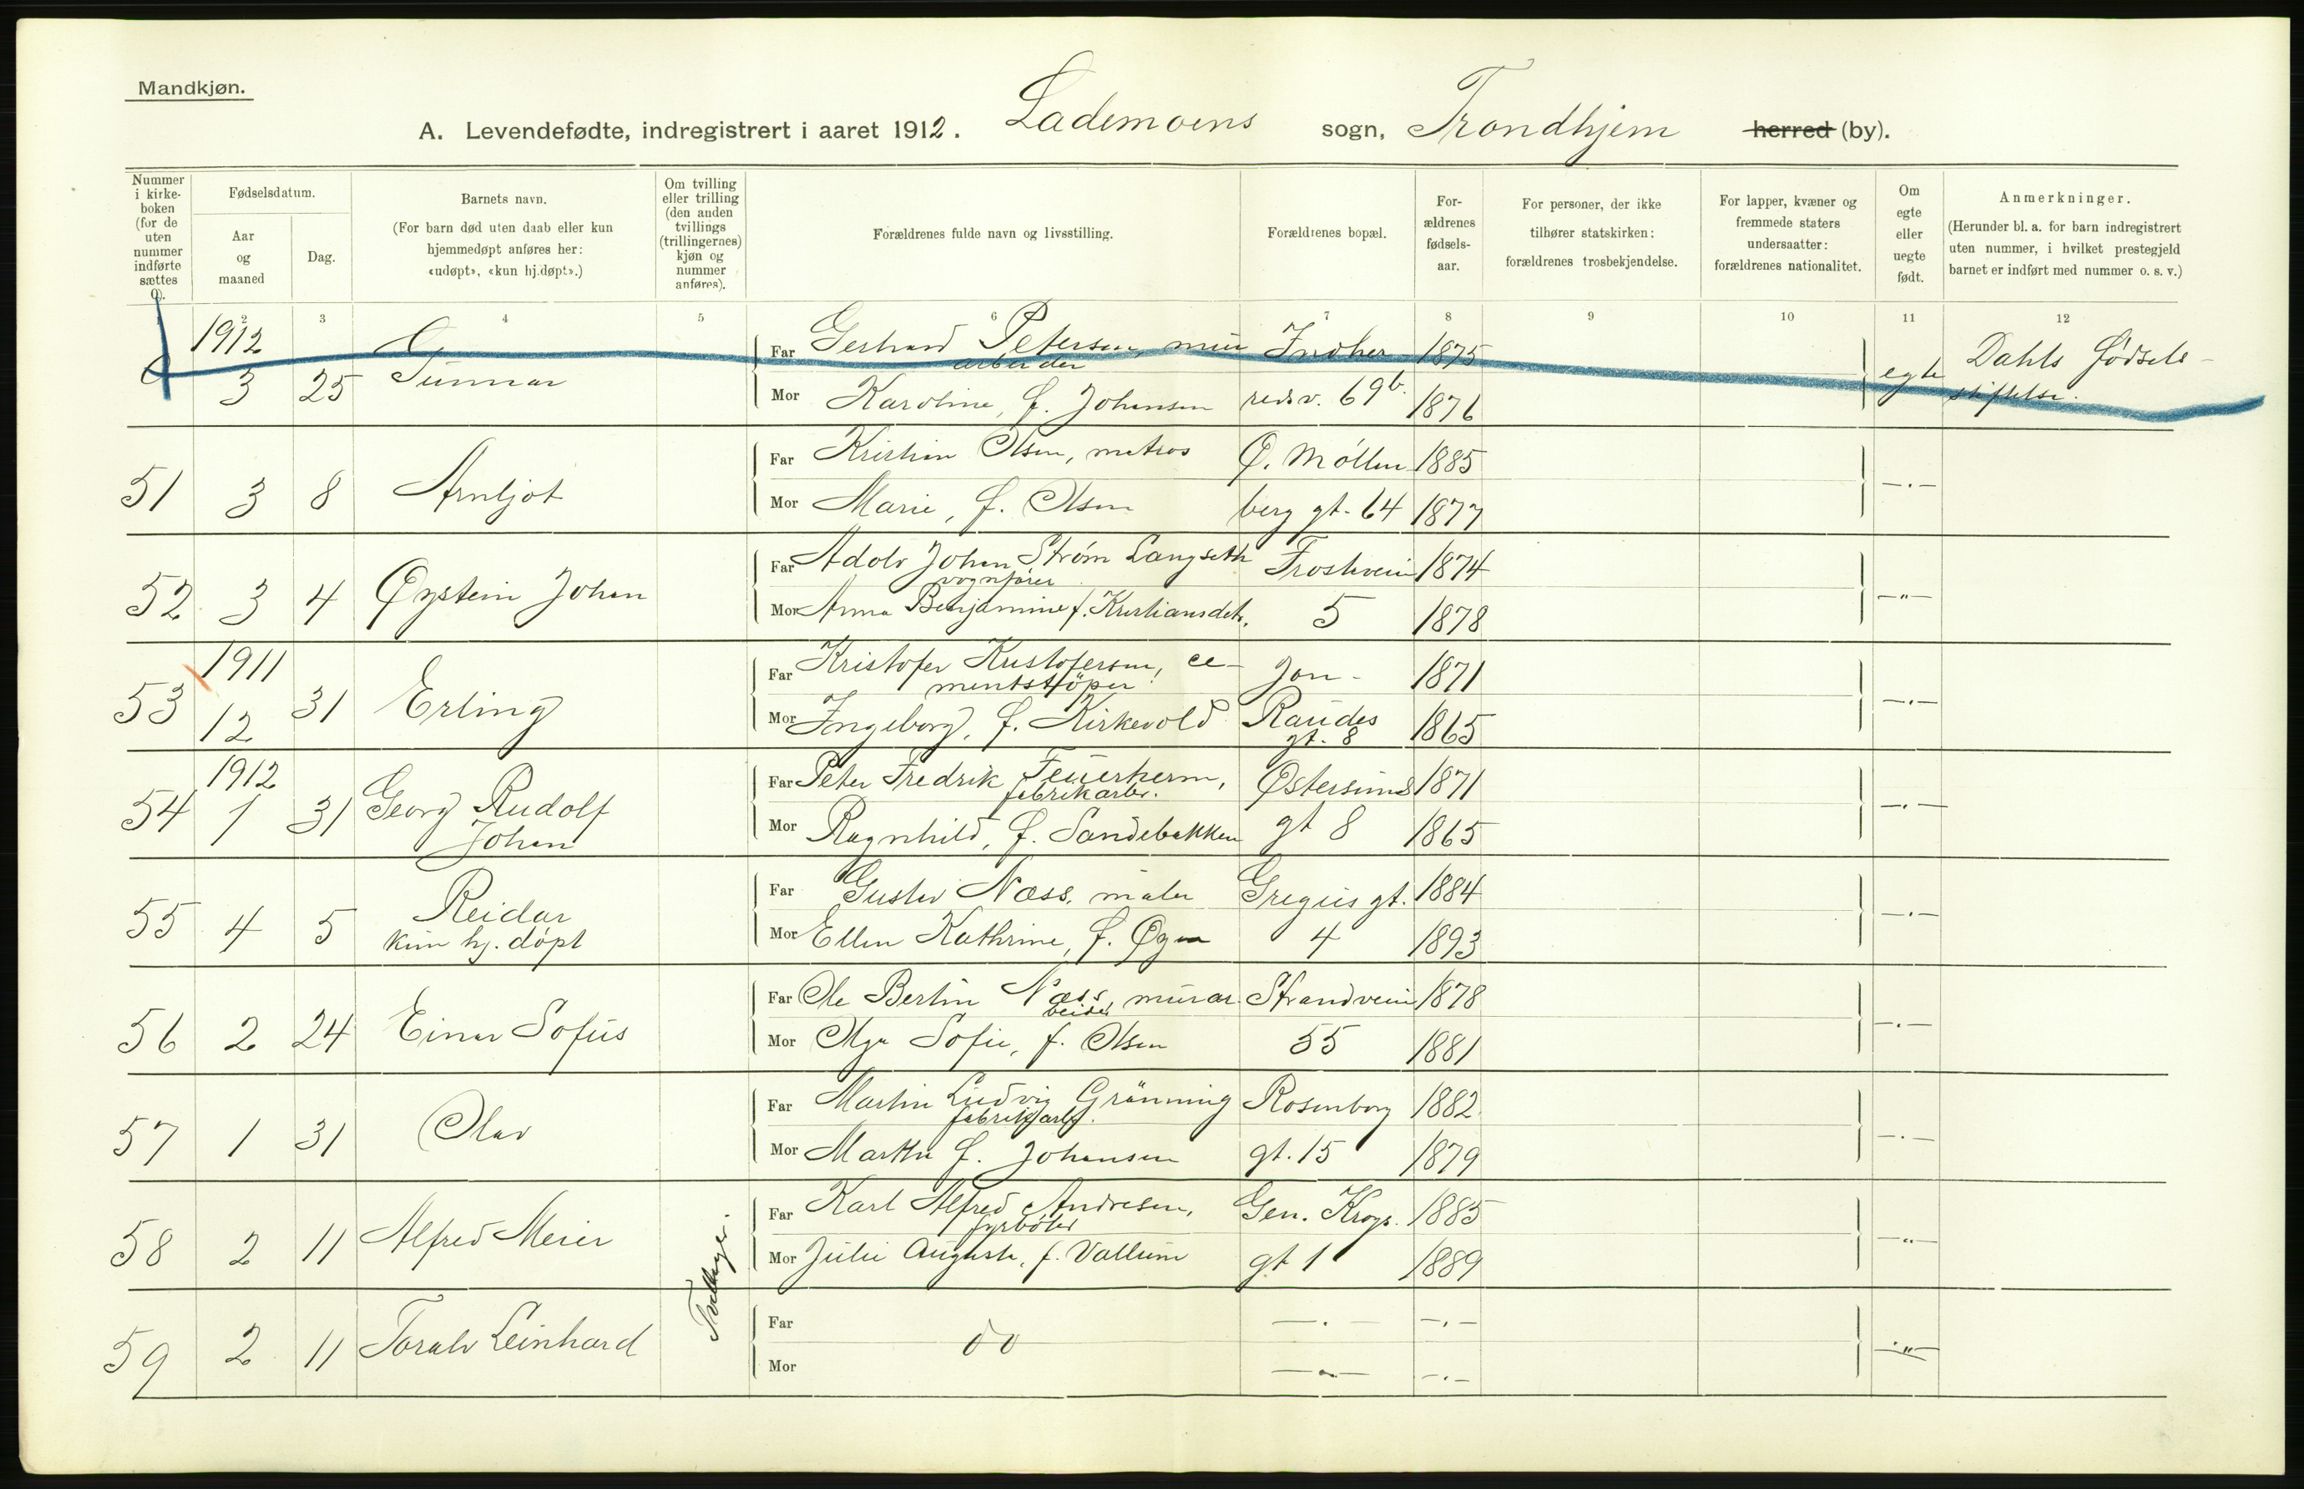 Mandkjøn.
A. Levendefødte, indregistrert i aaret 1912. Lademoens sogn, Trondhjem herred (by).
Nummer i kirkeboken (for de uten nummer indførte sættes 0).
Fødselsdatum.
Aar og maaned
Dag.
Barnets navn.
(For barn død uten daab eller kun hjemmedøpt anføres her: «udøpt», «kun hj.døpt».)
Om tvilling eller trilling (den anden tvillings (trillingernes) kjøn og nummer anføres).
Forældrenes fulde navn og livsstilling.
Forældrenes bopæl.
Forældrenes fødselsaar.
For personer, der ikke tilhører statskirken: forældrenes trosbekjendelse.
For lapper, kvæner og fremmede staters undersaatter: forældrenes nationalitet.
Om egte eller uegte født.
Anmerkninger.
(Herunder bl. a. for barn indregistrert uten nummer, i hvilket prestegjeld barnet er indført med nummer o. s. v.)
1 2 3 4 5 6 7 8 9 10 11 12
1912
0 3 25 Gunnar
Far Gerhard Petersen, mur Indher 1875
arbeider
Mor Karoline, f. Johansen redsv. 69b. 1876
egte Dahls fødsels-
stiftelse.
51 3 8 Arnljot
Far Kristian Olsen, matros Ø. Møllen 1885
Mor Marie, f. Olsen berg gt. 64 1877
—"—
52 3 4 Øystein Johan
Far Adolv Johan Strøm Langseth Frostavein 1874
vognfører
Mor Anna Benjamine f. Kristiansdtr. 5 1878
—"—
1911
53 12 31 Erling
Far Kristofer Kristofersen, ce- Jon- 1871
mentstøper
Mor Ingeborg, f. Kirkevold Raudes 1865
gt. 8
—"—
1912
54 1 31 Georg Rudolf
Johan
Far Peter Fredrik Feuerherm, Østersunds 1871
fabrikarb.
Mor Ragnhild, f. Sandebakken gt 8 1865
—"—
55 4 5 Reidar
kun hj. døpt
Far Gustav Næss, maler Gregus gt. 1884
Mor Ellen Kathrine, f. Øyen 4 1893
—"—
56 2 24 Einar Sofus
Far Ole Bertin Næss, murar Strandvein 1878
beider
Mor Olga Sofie, f. Olsen 55 1881
—"—
57 1 31 Olav
Far Martin Ludvig Grønning Rosenborg 1882
fabrikarb.
Mor Martha f. Johansen gt. 15 1879
—"—
58 2 11 Alfred Meier
Tvillinger.
Far Karl Alfred Andresen, Gen. Krogs. 1885
fyrbøter
Mor Julie Augusta, f. Vallum gt 1 1889
—"—
59 2 11 Toralv Leinhard
Far
do
Mor
—"— —"—
—"— —"—
—"—